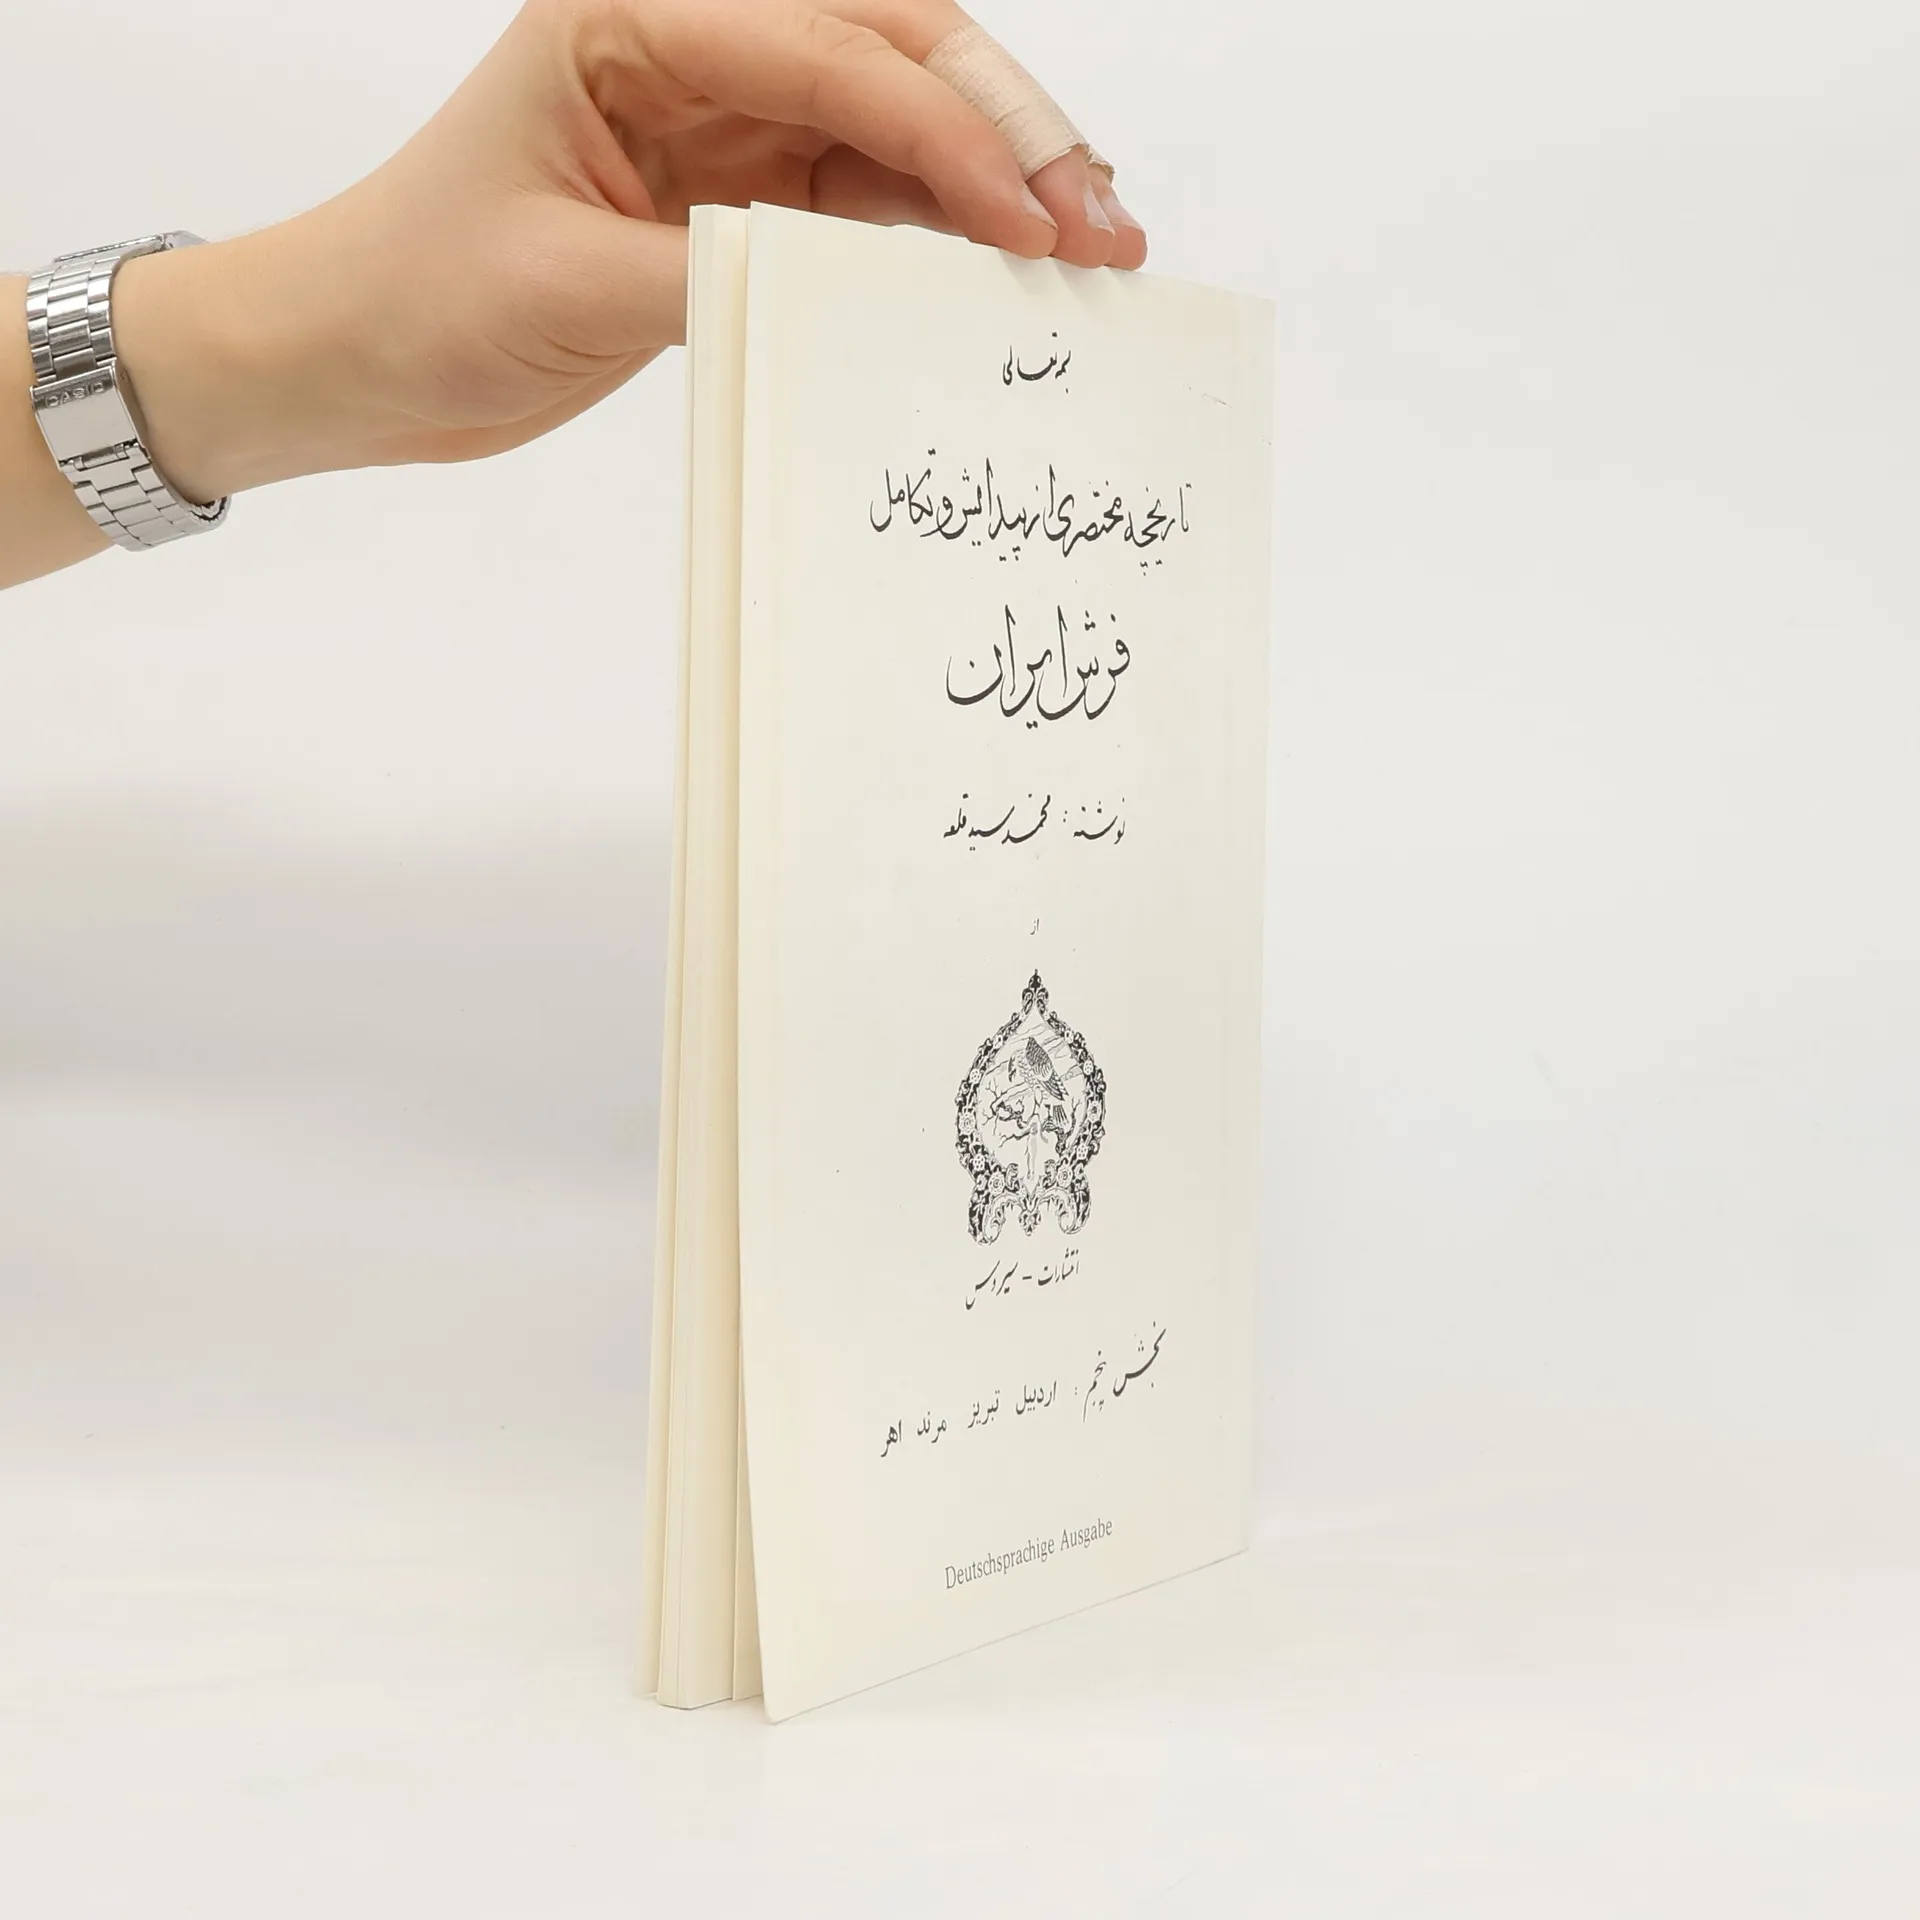 بسمه تعالی
تاریخچه مختصری از پیدایش و تکامل
فرش ایران
نوشته : محمد سید قلعه
از
انتشارات - سیروس
بخش پنجم : اردبیل تبریز مرند اهر
Deutschsprachige Ausgabe
CASIO